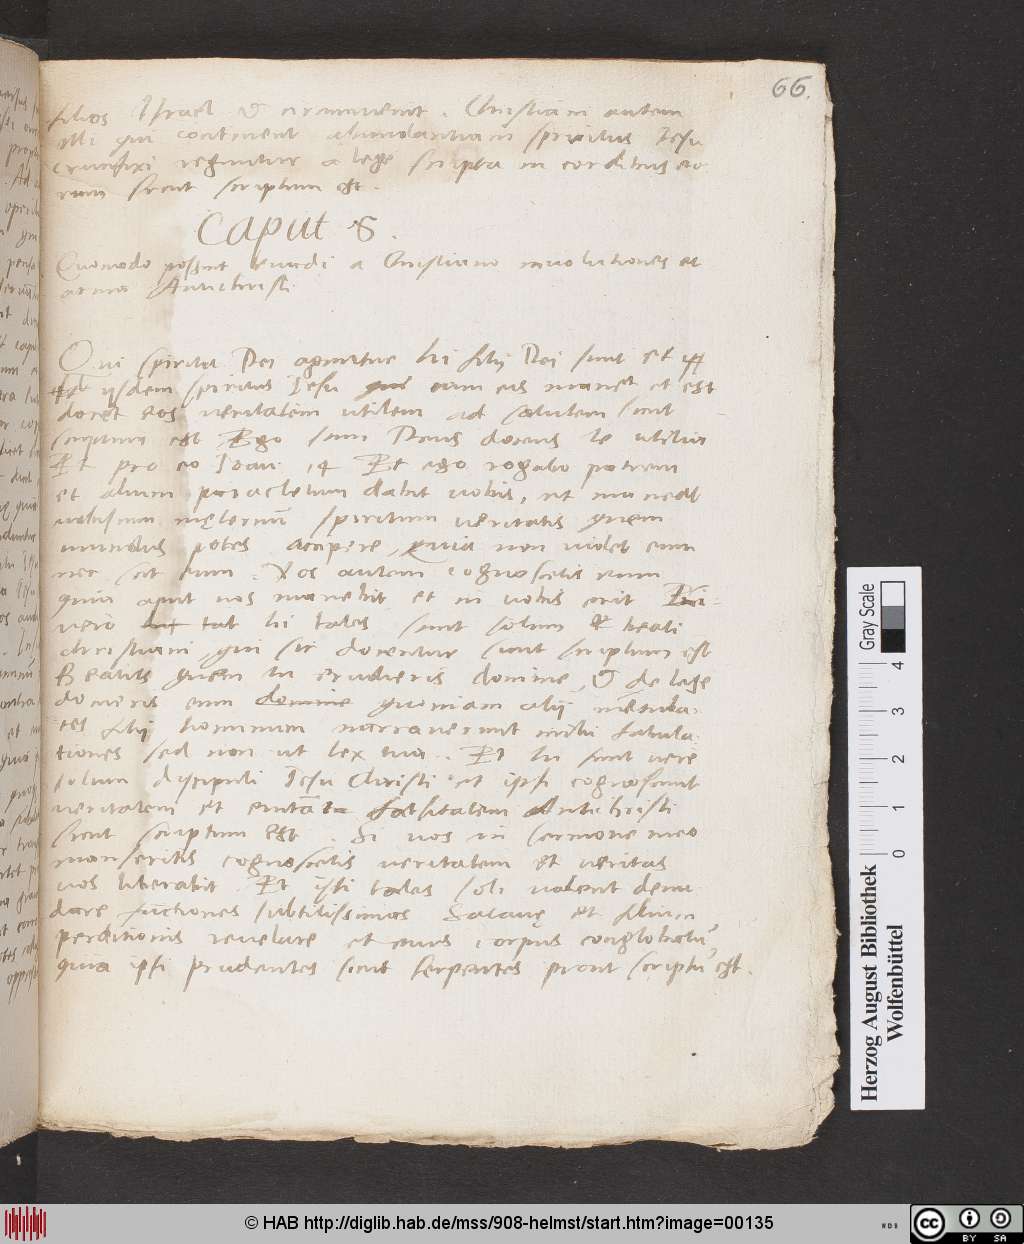 66.
filios Israel & circumvenit. Christiani autem
illi qui continent abundantiam spiritus Iesu
Crucifixi reguntur a lege scripta in cordibus eo
rum sicut scriptum est.
Caput 8.
Quomodo possint evadi a Christiano involutiones et
arma Antichristi
Qui spiritu Dei aguntur hi filij Dei sunt et
ijsdem spiritus Iesu cum eis manet et est
docet eos veritatem utilem ad salutem sicut
scriptum est Ego sum Deus docens te utilia
Et pro eo Ioan. 14 Et ego rogabo patrem
et alium paracletum dabit vobis, ut maneat
vobiscum spiritum veritatis quem
mundus potes accipere, quia non videt eum
nec scit eum. Vos autem cognoscetis eum
quia aput vos manebit et in vobis erit
vero hi tales sunt solum & beati
christiani, qui sic docentur sicut scriptum est
Beatus quem tu erudieris domine, & de lege
docueris eum domine quoniam alij
tes filij hominum narraverunt mihi fabula
tiones sed non ut lex tua. Et hi sunt vere
solum discipuli Iesu Christi et ipsi cognoscunt
veritatem et falsitatem Antichristi
sicut scriptum est. Si vos in sermone meo
manseritis cognoscetis veritatem et veritas
vos liberabit. Et isti tales soli valent denu
dare fictiones subtilissimas Satanę et filium
perditionis revelare et eius corpus conglobatū,
quia ipsi prudentes sicut serpentes prout scriptū est.
Herzog August Bibliothek
Wolfenbüttel
Gray Scale
0 1 2 3 4
© HAB http://diglib.hab.de/mss/908-helmst/start.htm?image=00135
WDB
cc
BY SA